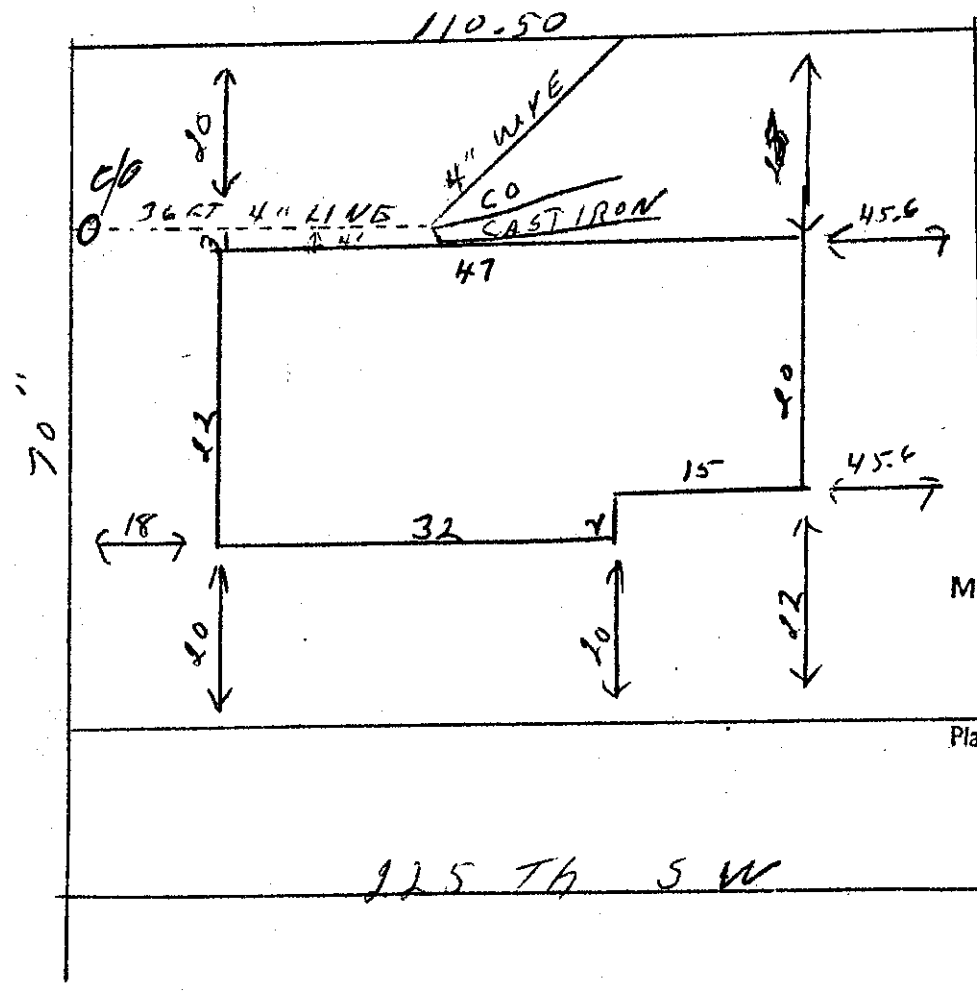 110.50
20
4" WYE
c/o
36 FT 4" LINE
CO
CAST IRON
3
4'
45.6
47
70"
22
20
15
45.6
18
32
2
20
20
22
M
Pla
225 Th SW